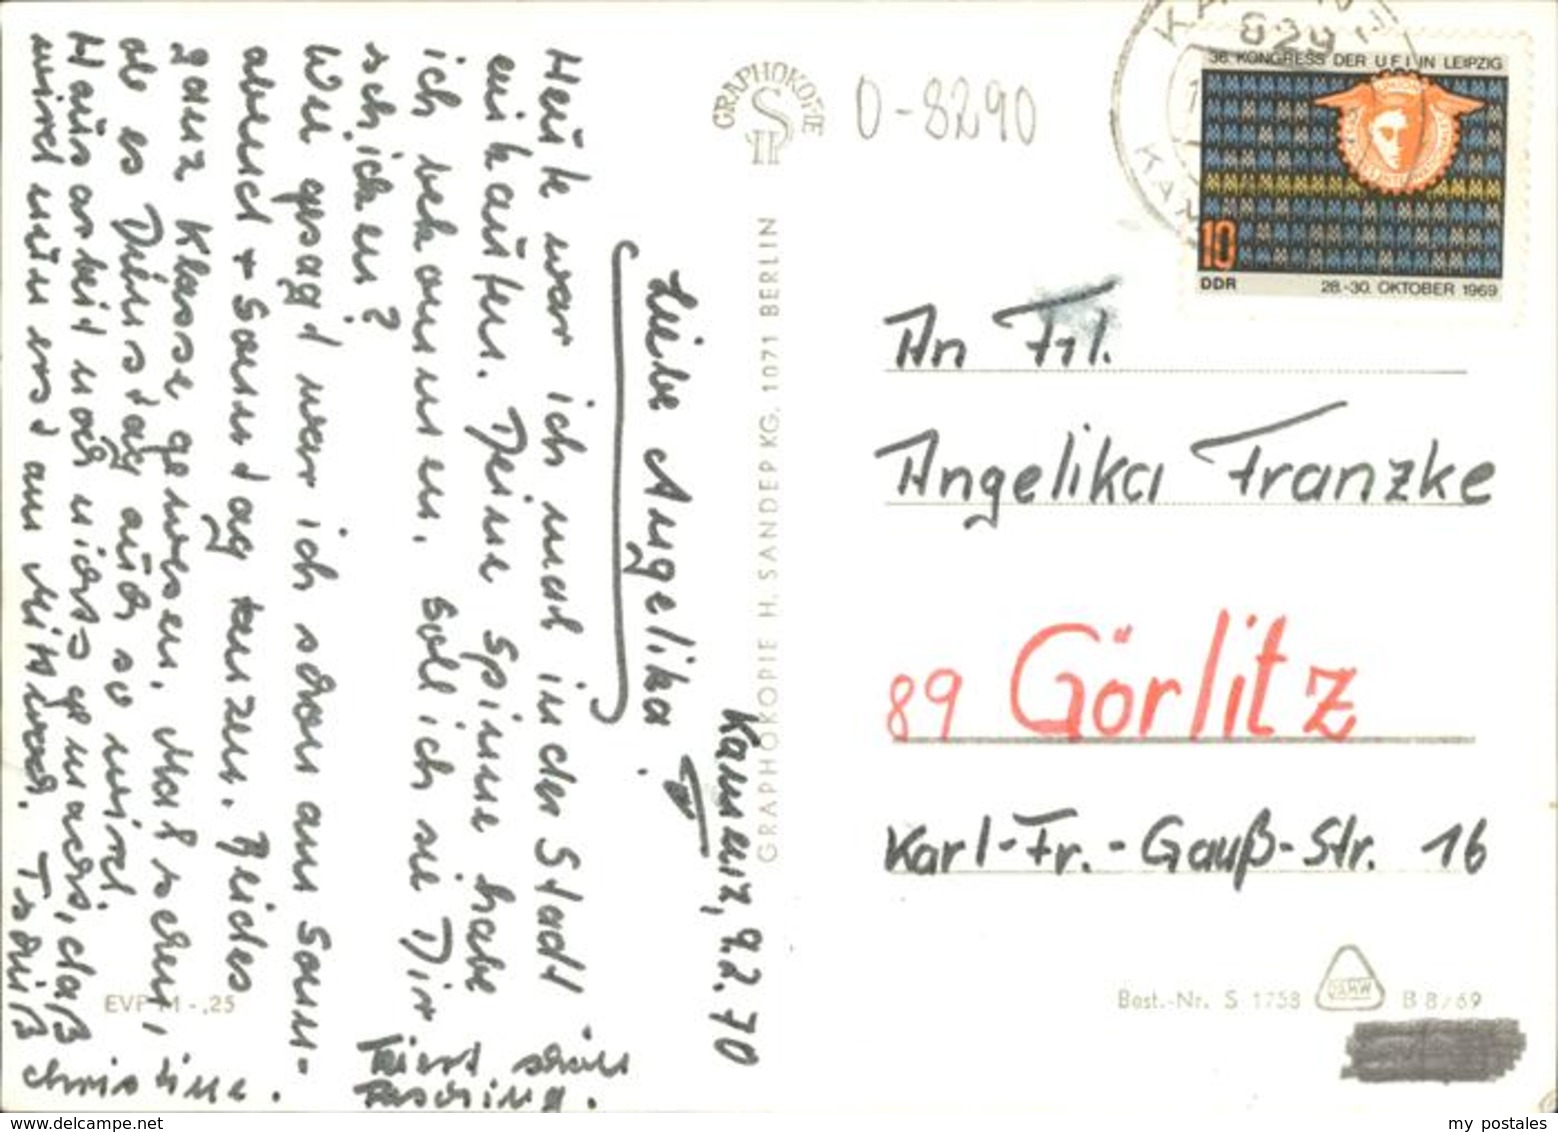 Kamenz, 9.2.70
Liebe Angelika!
Heute war ich mal in der Stadt
einkaufen. Deine Spinne habe
ich bekommen. Soll ich sie Dir
schicken?
Wie gesagt war ich schon am Sonn-
abend + Sonntag tanzen. Beides
ganz Klasse gewesen. Mal sehen,
ob es Dienstag auch so wird.
Hausarbeit noch nichts gemacht, daß
wird nun erst am Mittwoch. Tschüß
Christine.
Feiert schön
Fasching.
GRAPHOKOPIE
H S
GRAPHOKOPIE H. SANDER KG, 1071 BERLIN
EVP M -,25
0-8290
KAMENZ
829
36. KONGRESS DER UFI IN LEIPZIG
10
DDR
28.-30. OKTOBER 1969
An Frl.
Angelika Franzke
89 Görlitz
Karl-Fr.-Gauß-Str. 16
Best.-Nr. S 1758 B 8/69
www.delcampe.net
my postales